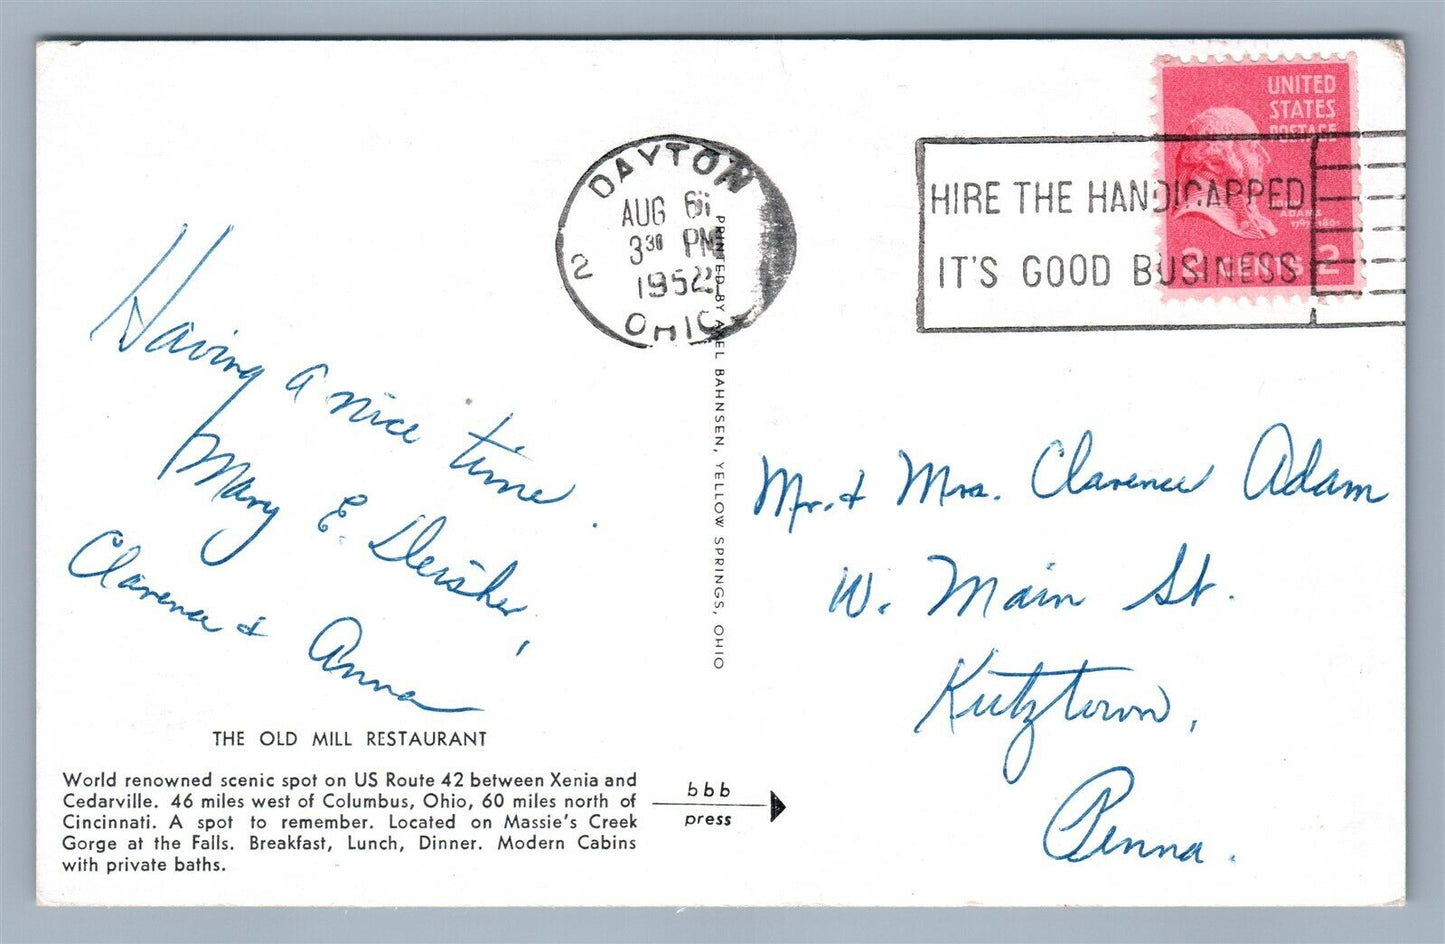 Having a nice time.
Mary E. Deisher,
Clarence & Anna
THE OLD MILL RESTAURANT
World renowned scenic spot on US Route 42 between Xenia and
Cedarville. 46 miles west of Columbus, Ohio, 60 miles north of
Cincinnati. A spot to remember. Located on Massie's Creek
Gorge at the Falls. Breakfast, Lunch, Dinner. Modern Cabins
with private baths.
DAYTON
AUG 6
3 30 PM
1952
2
OHIO
PRINTED BY AXEL BAHNSEN, YELLOW SPRINGS, OHIO
bbb
press
HIRE THE HANDICAPPED
IT'S GOOD BUSINESS
UNITED
STATES
POSTAGE
ADAMS
2 CENTS 2
Mr. & Mrs. Clarence Adam
W. Main St.
Kutztown,
Penna.